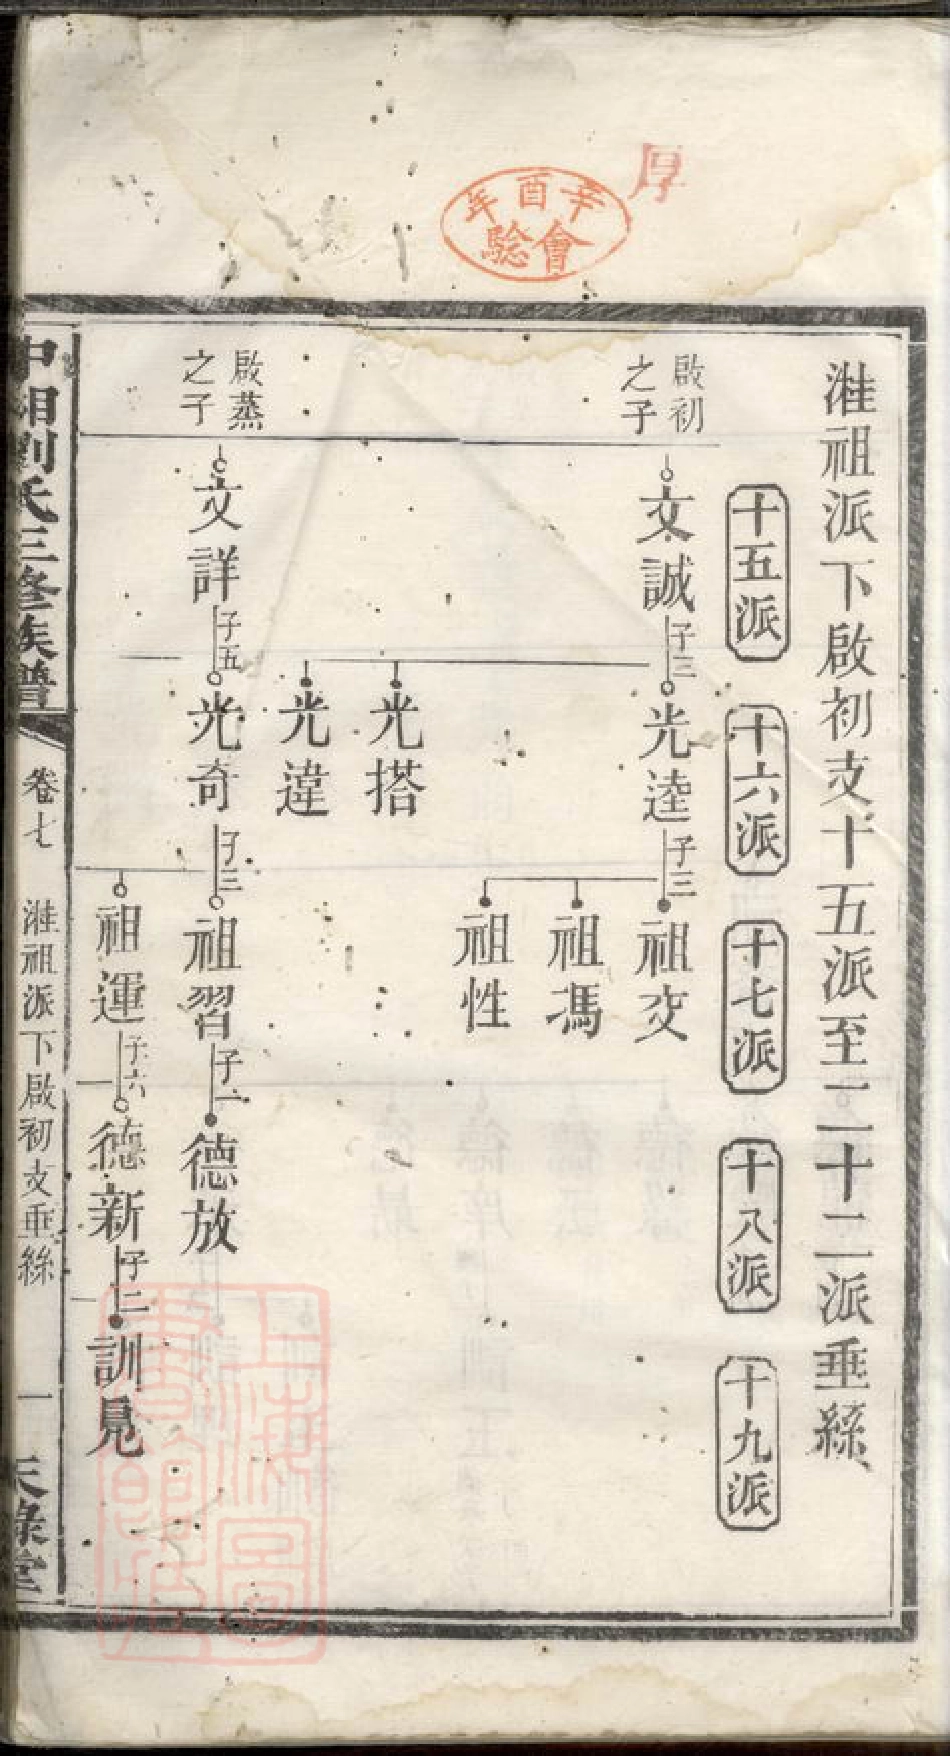 厚
辛酉年
會驗
淮祖派下啟初支十五派至二十二派垂絲
十五派
十六派
十七派
十八派
十九派
啟初
之子
文誠
子三
光逵
子三
祖交
祖馮
祖性
光搭
光違
啟蒸
之子
文詳
子五
光奇
子三
祖習
子一
德放
祖運
子六
德新
子二
訓見
中湘劉氏三修族譜
卷七
淮祖派下啟初支垂絲
一
天祿堂
上海圖
書館藏